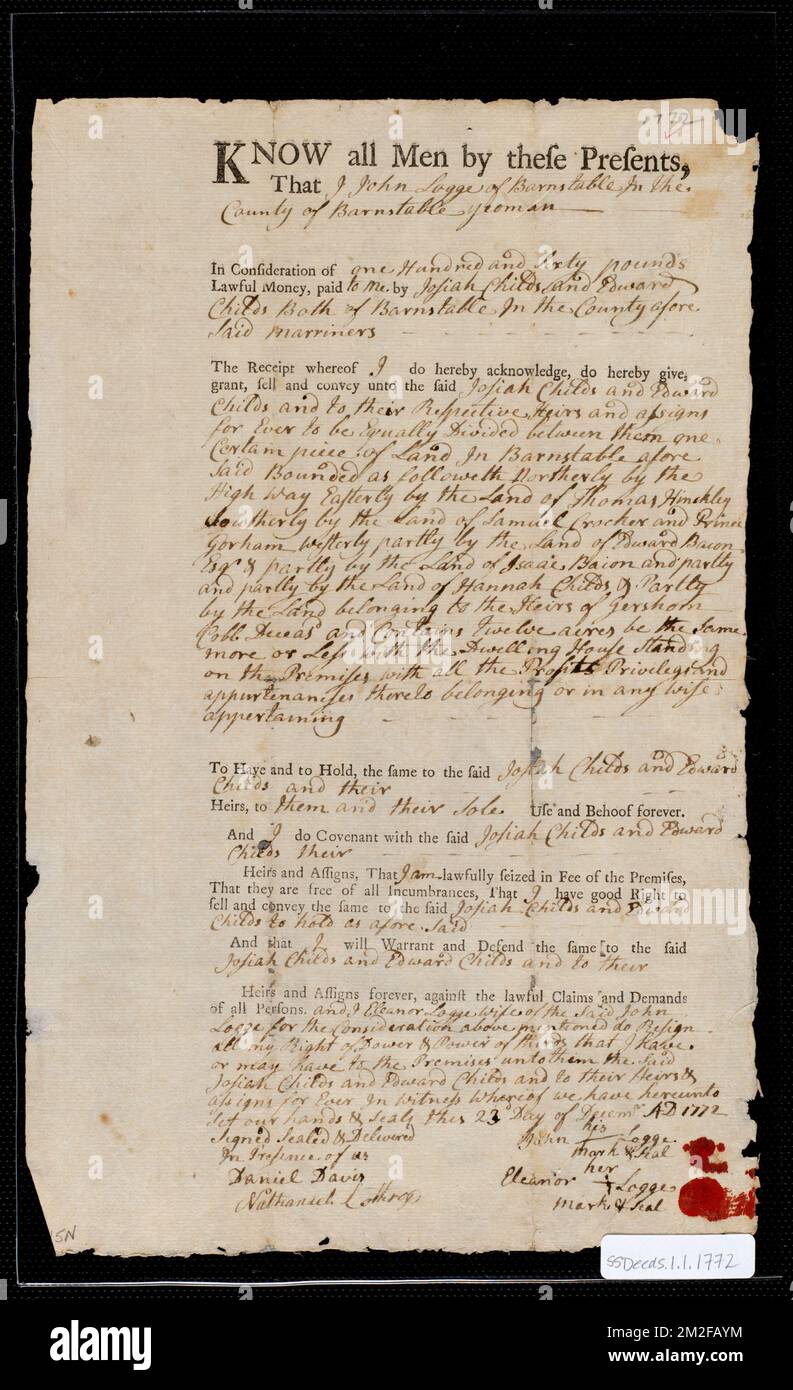 1772
KNOW all Men by theſe Preſents,
That I John Logge of Barnstable In the
County of Barnstable yeoman
In Conſideration of one Hundred and Sixty pounds
Lawful Money, paid to me by Joſiah Childs and Edward
Childs Both of Barnstable In the County afore
Said marriners
The Receipt whereof I do hereby acknowledge, do hereby give,
grant, ſell and convey unto the ſaid Joſiah Childs and Edward
Childs and to their Reſpective Heirs and aſsigns
for Ever to be Equally Divided between them one
Certain piece of Land In Barnstable afore
Said Bounded as followeth Northerly by the
High way Easterly by the Land of Thomas Hinckley
Southerly by the Land of Samuel Crocker and Prince
Gorham westerly partly by the Land of Edward Bacon
Esqr & partly by the Land of Isaac Bacon and partly
and partly by the Land of Hannah Childs & Partly
by the Land belonging to the Heirs of Gershom
Cobb Deceasd and Contains twelve acres be the Same
more or Less with the Dwelling House Standing
on the Premises with all the Profits Privileges and
appurtenances thereto belonging or in any wise
appertaining
To Have and to Hold, the ſame to the ſaid Joſiah Childs and Edward
Childs and their
Heirs, to them and their Sole Uſe and Behoof forever.
And I do Covenant with the ſaid Joſiah Childs and Edward
Childs their
Heirs and Aſſigns, That I am lawfully ſeized in Fee of the Premiſes,
That they are free of all Incumbrances, That I have good Right to
ſell and convey the ſame to the ſaid Joſiah Childs and Edward
Childs to hold as afore Said
And that I will Warrant and Defend the ſame to the ſaid
Joſiah Childs and Edward Childs and to their
Heirs and Aſſigns forever, againſt the lawful Claims and Demands
of all Perſons. and I Eleanor Logge wife of the Said John
Logge for the Consideration above mentioned do Resign
all my Right of Dower & Power of thirds that I have
or may have to the Premises unto them the Said
Joſiah Childs and Edward Childs and to their Heirs &
aſsigns for Ever In witness whereof we have hereunto
Set our hands & Seals this 23 Day of Decemr AD 1772
Signed Sealed & Delivered
In Presence of us
Daniel Davis
Nathaniel Lothrop
his
John Logge
mark & Seal
her
Eleanor Logge
mark & Seal
5N
SSDeeds.1.1.1772
alamy
Image ID: 2M2FAYM
www.alamy.com